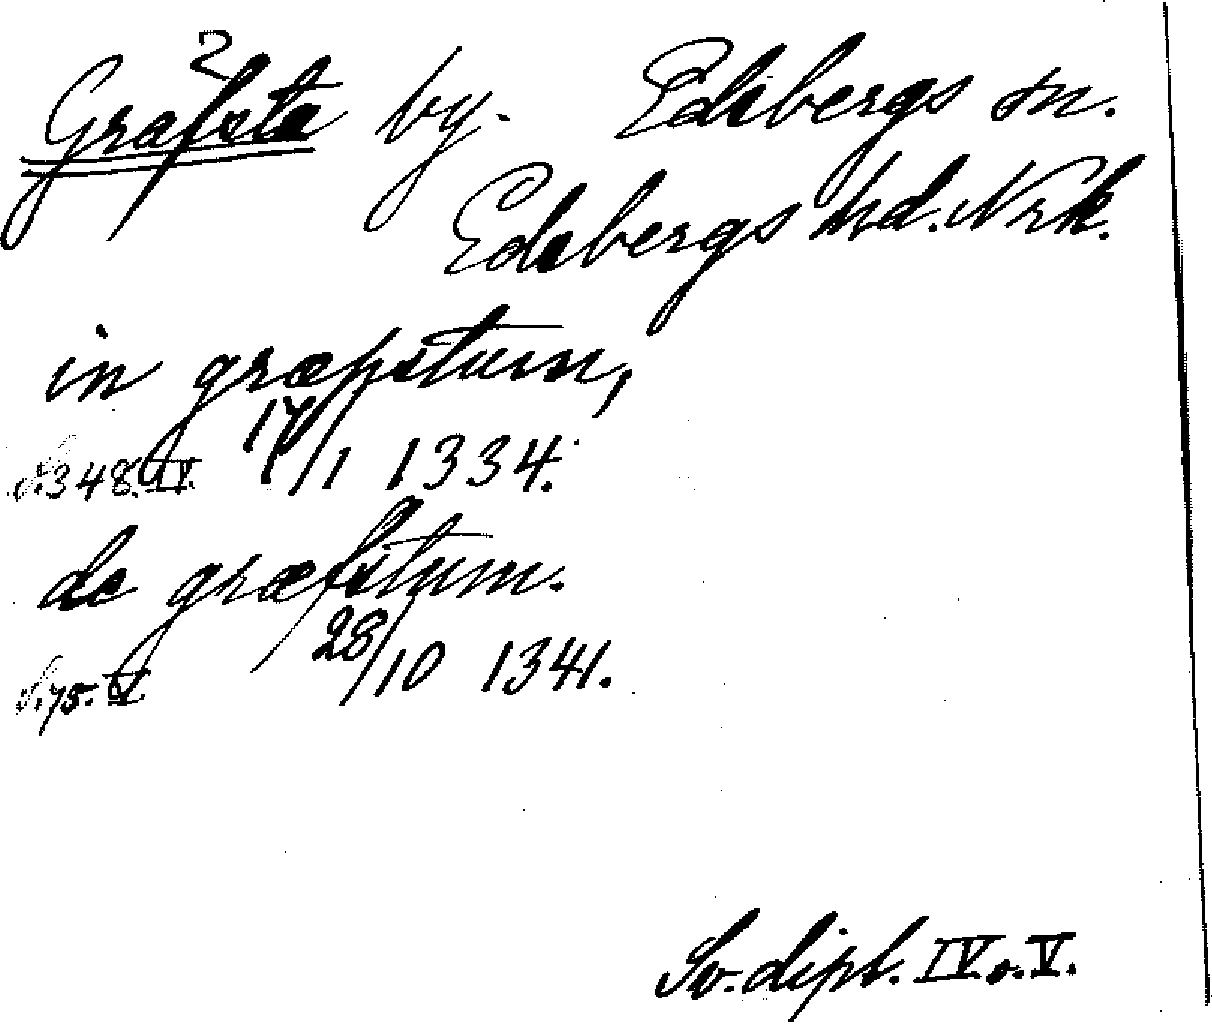 2
Grafsta by. Edsbergs sn.
Edsbergs hd. Nrk.
in græpstum,
S. 348. IV. 17/1 1334.
de græfstum.
S. 75. V 28/10 1341.
Sv. dipl. IV o. V.